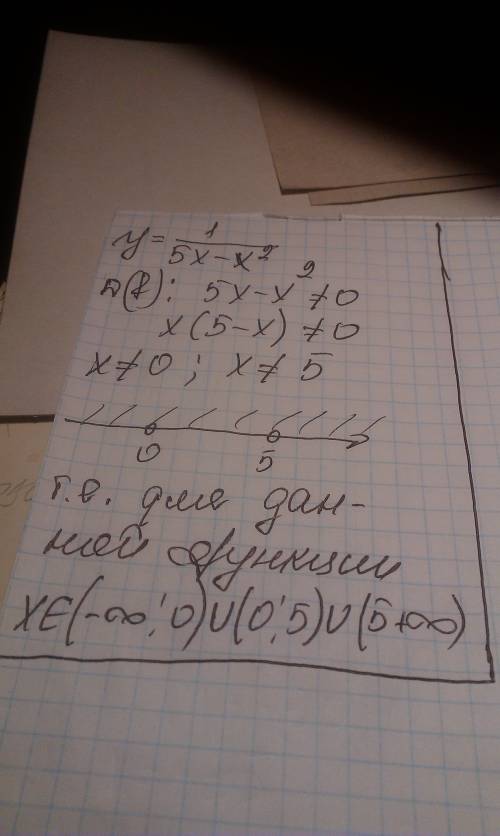 y = 1/(5x-x²)
D(f): 5x-x² ≠ 0
x(5-x) ≠ 0
x ≠ 0 ; x ≠ 5
0 5
т.е. для дан-
ной функции
X∈(-∞; 0)∪(0; 5)∪(5+∞)